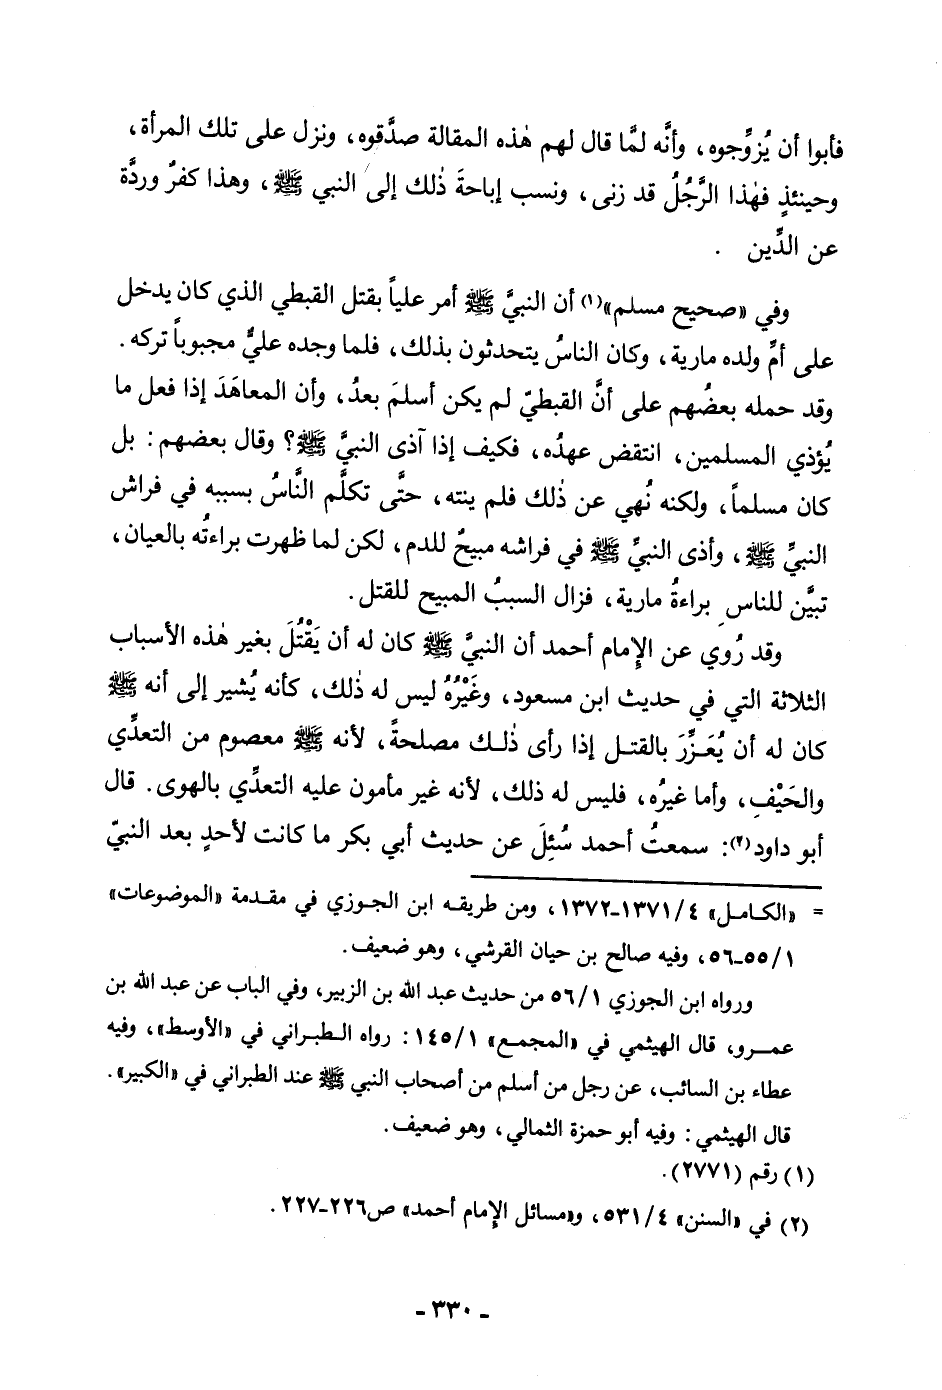 فأبوا أن يُزوِّجوه، وأنَّه لمَّا قال لهم هٰذه المقالة صدَّقوه، ونزل على تلك المرأة،
وحينئذٍ فهٰذا الرَّجُلُ قد زنى، ونسب إباحةَ ذٰلك إلى النبي ﷺ، وهذا كفرٌ وردَّة
عن الدِّين .
وفي «صحيح مسلم»(١) أن النبيَّ ﷺ أمر علياً بقتل القبطي الذي كان يدخل
على أمِّ ولده مارية، وكان الناسُ يتحدثون بذلك، فلما وجده عليٌّ مجبوباً تركه.
وقد حمله بعضُهم على أنَّ القبطيّ لم يكن أسلمَ بعدُ، وأن المعاهَدَ إذا فعل ما
يُؤذي المسلمين، انتقض عهدُه، فكيف إذا آذى النبيَّ ﷺ؟ وقال بعضهم: بل
كان مسلماً، ولكنه نُهي عن ذٰلك فلم ينته، حتَّى تكلَّم النَّاسُ بسببه في فراش
النبيِّ ﷺ، وأذى النبيِّ ﷺ في فراشه مبيحٌ للدم، لكن لما ظهرت براءتُه بالعيان،
تبيَّن للناس براءةُ مارية، فزال السببُ المبيح للقتل.
وقد رُوي عن الإمام أحمد أن النبيَّ ﷺ كان له أن يَقْتُلَ بغير هٰذه الأسباب
الثلاثة التي في حديث ابن مسعود، وغَيْرُهُ ليس له ذٰلك، كأنه يُشير إلى أنه ﷺ
كان له أن يُعَزِّرَ بالقتل إذا رأى ذٰلك مصلحةً، لأنه ﷺ معصوم من التعدِّي
والحَيْفِ، وأما غيرُه، فليس له ذلك، لأنه غير مأمون عليه التعدِّي بالهوى. قال
أبو داود(٢): سمعتُ أحمد سُئِلَ عن حديث أبي بكر ما كانت لأحدٍ بعد النبيّ
= «الكامل» ٤/ ١٣٧١-١٣٧٢، ومن طريقه ابن الجوزي في مقدمة «الموضوعات»
١/ ٥٥-٥٦، وفيه صالح بن حيان القرشي، وهو ضعيف.
ورواه ابن الجوزي ١/ ٥٦ من حديث عبد الله بن الزبير، وفي الباب عن عبد الله بن
عمرو، قال الهيثمي في «المجمع» ١/ ١٤٥: رواه الطبراني في «الأوسط»، وفيه
عطاء بن السائب، عن رجل من أسلم من أصحاب النبي ﷺ عند الطبراني في «الكبير».
قال الهيثمي: وفيه أبو حمزة الثمالي، وهو ضعيف.
(١) رقم (٢٧٧١).
(٢) في «السنن» ٤/ ٥٣١، و«مسائل الإمام أحمد» ص٢٢٦-٢٢٧.
- ٣٣٠ -